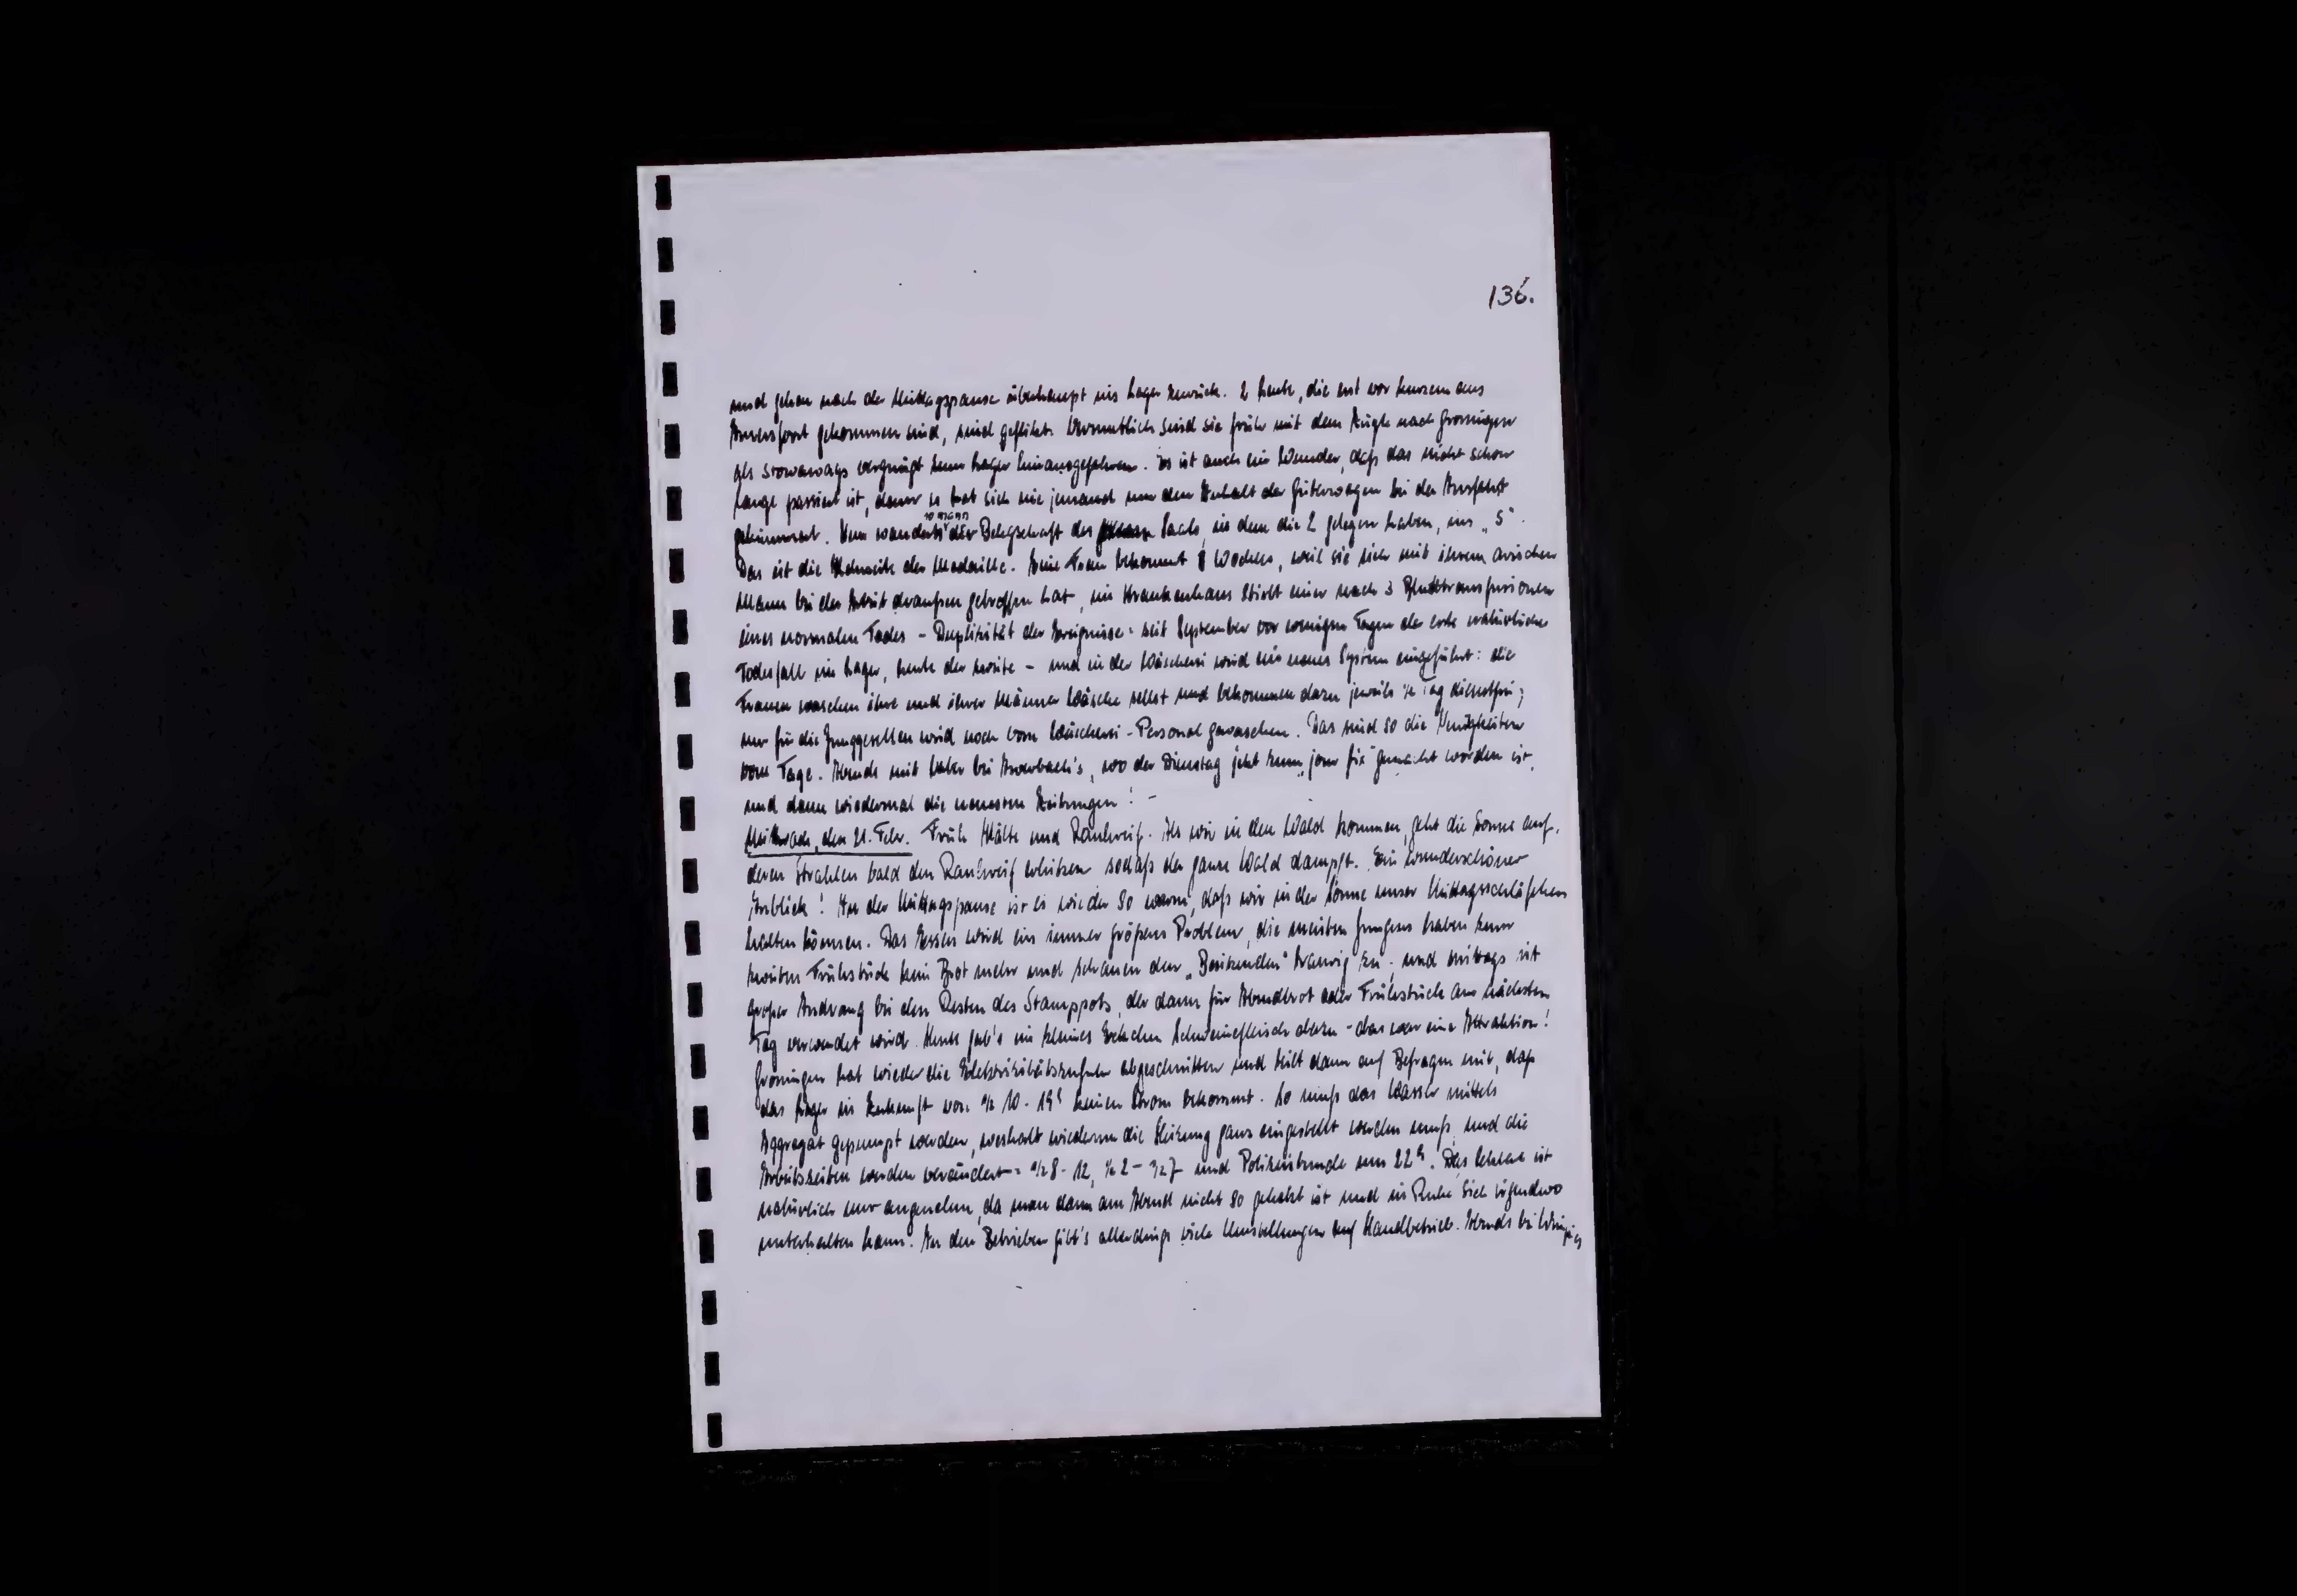 136.
und gehen nach der Mittagspause überhaupt ins Lager zurück. 2 Leute, die erst vor kurzem aus
Amersfoort gekommen sind, sind geflitzt. Vermutlich sind sie früh mit dem Zügle nach Groningen
als Stowaways vergnügt zum Lager hinausgefahren. Es ist auch ein Wunder, daß das nicht schon
lange passiert ist, denn es hat sich nie jemand um den Inhalt der Güterwagen bei der Ausfahrt
gekümmert. Nun wandert 10 mann der Belegschaft des Saals, in dem die 2 gelegen haben, ins „S".
Das ist die Kehrseite der Medaille. Eine Frau bekommt Wochen, weil sie sich mit ihrem arischen
Mann bei der Arbeit draußen getroffen hat, im Krankenhaus stirbt einer nach 3 Bluttransfusionen
eines normalen Todes - Duplizität der Ereignisse: seit September vor einigen Tagen der erste natürliche
Todesfall im Lager, heute der zweite - und in der Wäscherei wird ein neues System eingeführt: die
Frauen waschen ihre und ihrer Männer Wäsche selbst und bekommen dazu jeweils ½ Tag dienstfrei;
nur für die Junggesellen wird noch vom Wäscherei-Personal gewaschen. Das sind so die Neuigkeiten
vom Tage. Abends mit bei Auerbach's, wo der Dienstag jetzt zum „jour fix" gemacht worden ist,
und dann wiedermal die neuesten Zeitungen! -
Mittwoch, den 21. Febr. Früh Kälte und Rauhreif. Als wir in den Wald kommen, geht die Sonne auf,
deren Strahlen bald den Rauhreif erhitzen sodaß der ganze Wald dampft. Ein wunderschöner
Anblick! In der Mittagspause ist es wieder so warm, daß wir in der Sonne unser Mittagsschläfchen
halten können. Das Essen wird ein immer größeres Problem, die meisten Jungens haben zum
zweiten Frühstück kein Brot mehr und schauen den „Besitzenden" traurig zu; und mittags ist
großer Andrang bei den Resten des Stamppots, der dann für Abendbrot oder Frühstück am nächsten
Tag verwendet wird. Heute gab's ein kleines Schweinefleisch dazu - das war eine Attraktion!
Groningen hat wieder die Elektrizitätszufuhr abgeschnitten und teilt dann auf Befragen mit, daß
das Lager in Zukunft von ½ 10 - 19h keinen Strom bekommt. So muß das Wasser mittels
Aggregat gepumpt werden, weshalb wiederum die Heizung ganz eingestellt werden muß, und die
Arbeitszeiten werden verändert: ½ 8 - 12, ½ 2 - ½ 7 und Polizeistunde um 22h. Das letztere ist
natürlich nur angenehm, da man dann am Abend nicht so gehetzt ist und in Ruhe sich irgendwo
unterhalten kann. In den Betrieben gibt's allerdings viele Umstellungen auf Handbetrieb. Abends bei